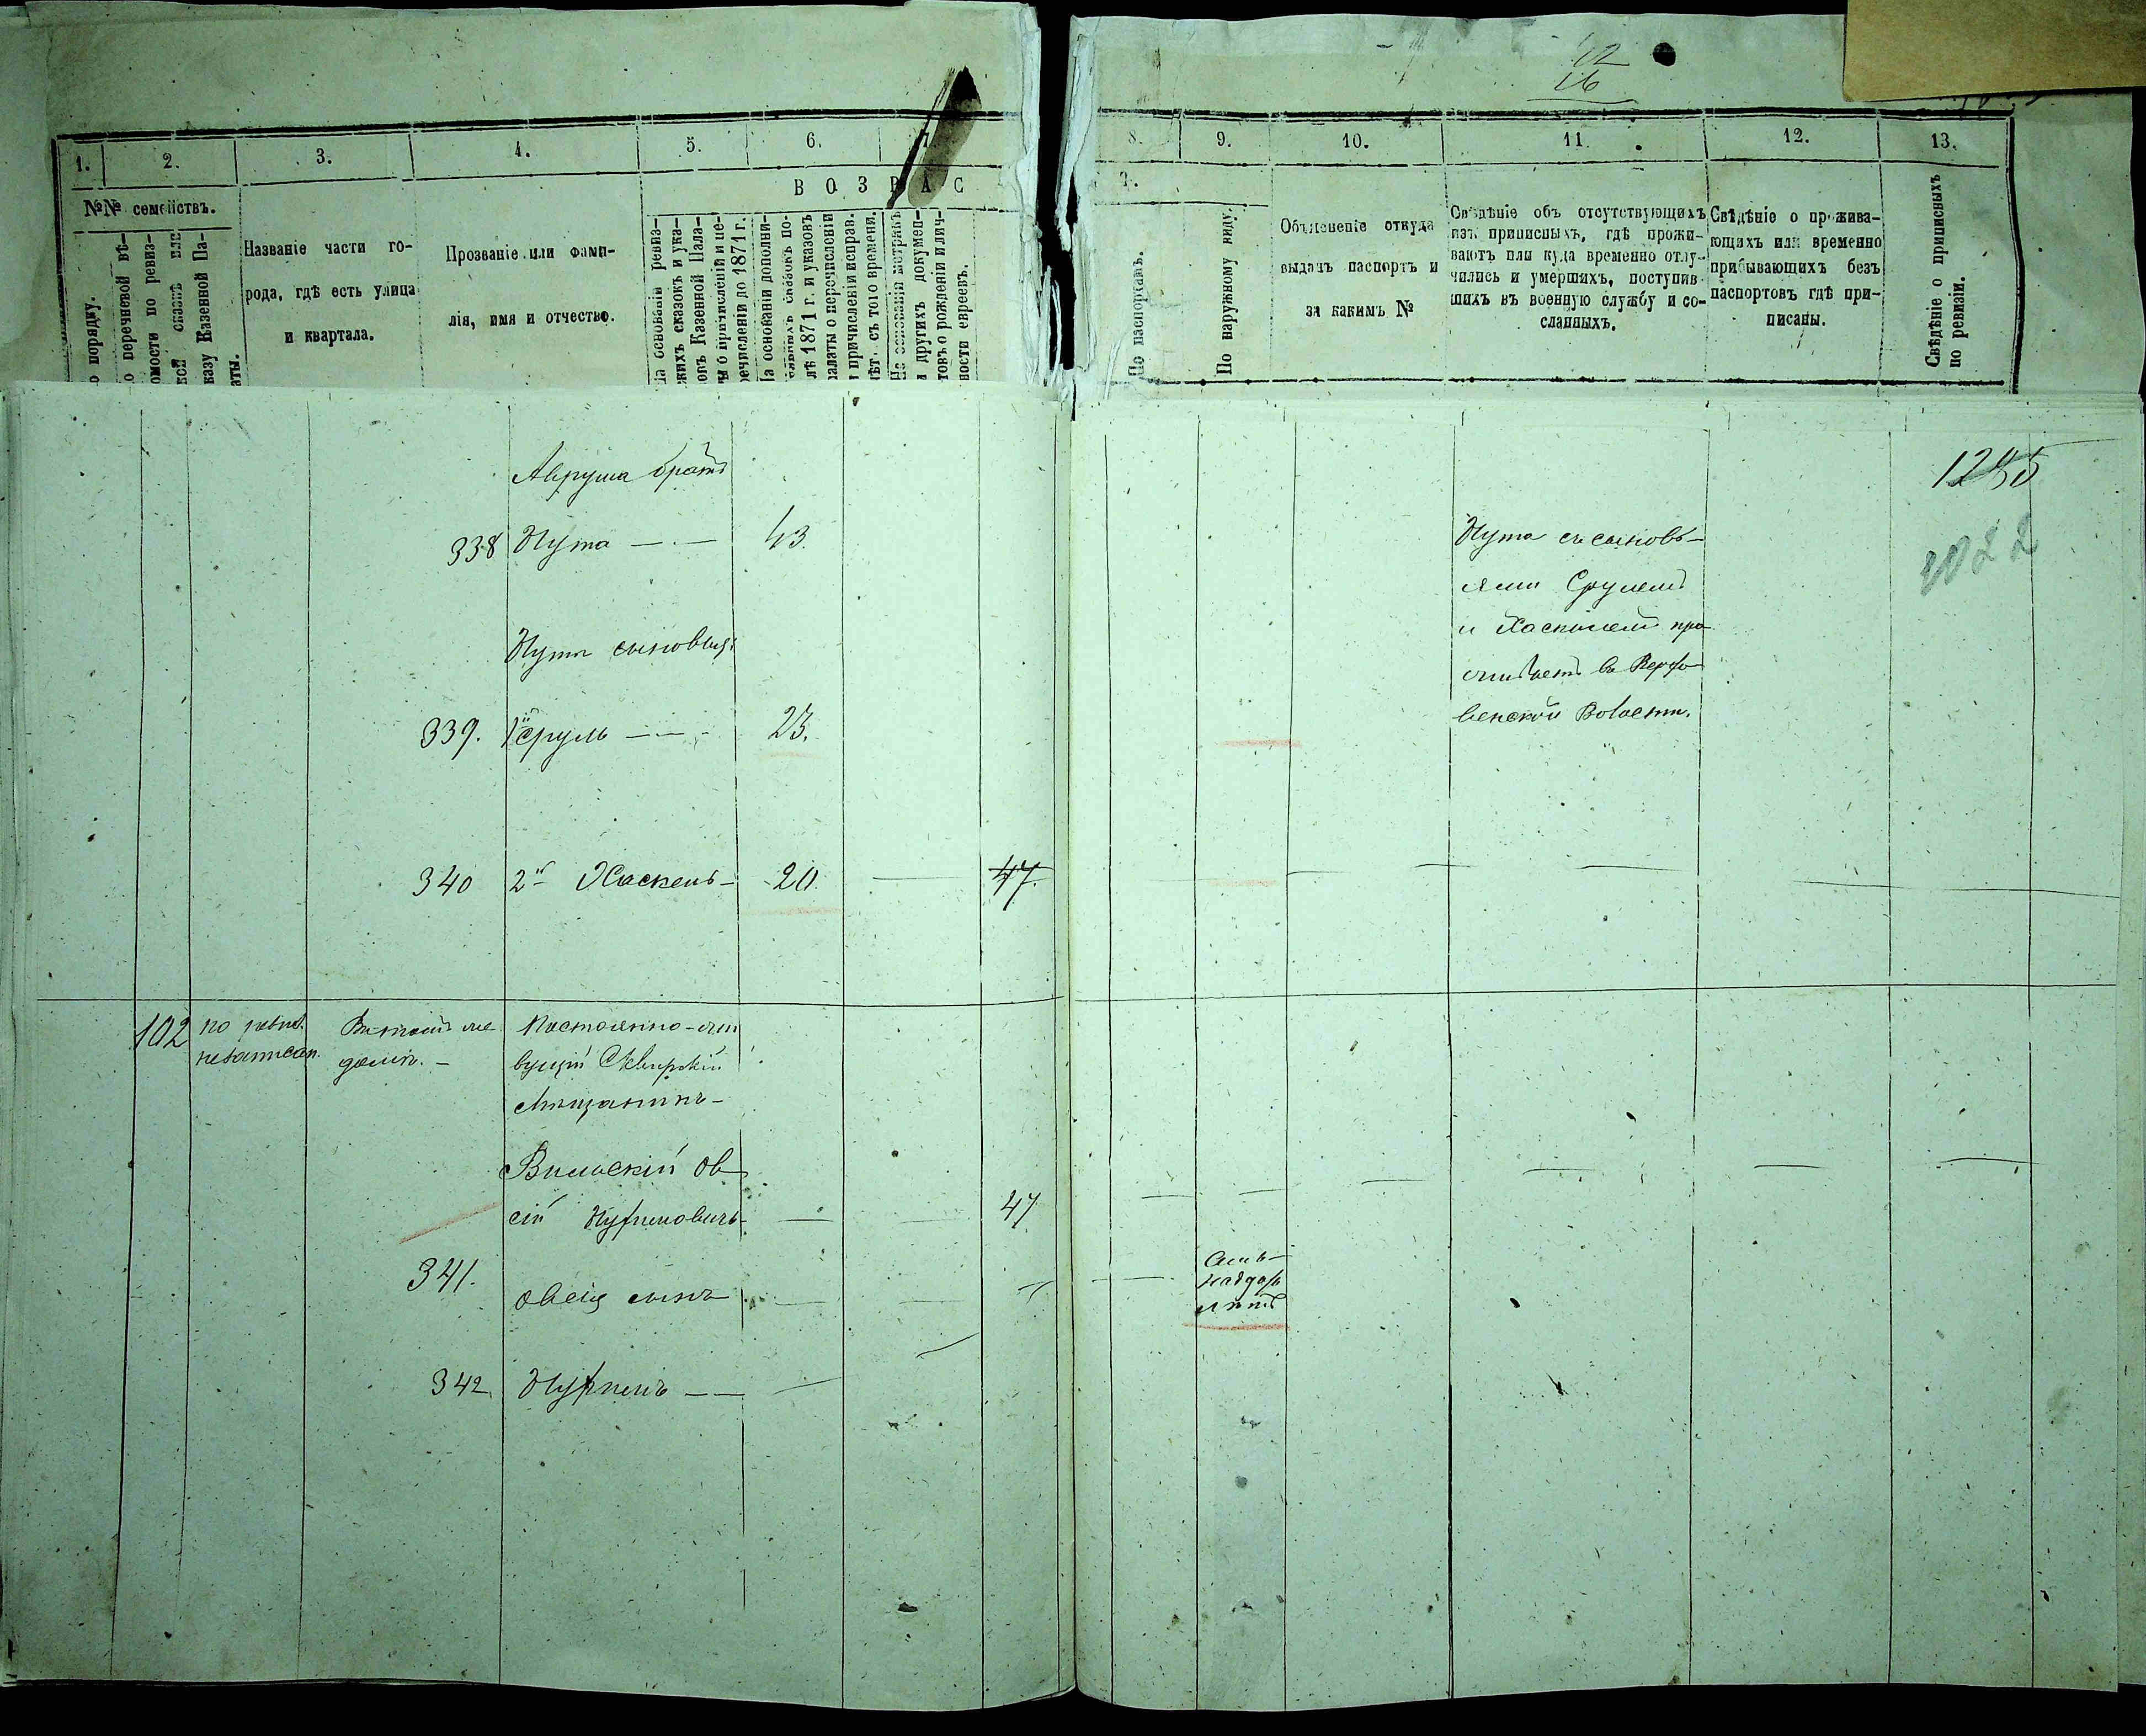 42
16
1.
2.
3.
4.
5.
6.
7.
8.
9.
10.
11.
12.
13.
ВОЗРАС
Т.
№№ семействъ.
о порядку.
о перечневой вѣ-
омости по ревиз-
ской сказкѣ или
казу Казенной Па-
аты.
Названіе части го-
рода, гдѣ есть улица
и квартала.
Прозваніе или фами-
лія, имя и отчество.
На основаніи ревиз-
жихъ сказокъ и ука-
овъ Казенной Пала-
ы о причисленіи и пе-
речисленіи до 1871 г.
На основаніи дополни-
сказокъ по-
лѣ 1871 г. и указовъ
палаты о перечисленіи
и причисленіи исправ.
лѣт. съ того времени.
На основаніи метрикъ
и другихъ докумен-
товъ о рожденіи и лич-
ности евреевъ.
По паспортамъ.
По наружному виду.
Объясненіе откуда
выданъ паспортъ и
за какимъ №
Свѣдѣніе объ отсутствующихъ
изъ приписныхъ, гдѣ прожи-
ваютъ или куда временно отлу-
чились и умершихъ, поступив-
шихъ въ военную службу и со-
сланныхъ.
Свѣдѣніе о прожива-
ющихъ или временно
прибывающихъ безъ
паспортовъ гдѣ при-
писаны.
Свѣдѣніе о приписныхъ
по ревизіи.
1245
2022
Аврума братъ
338 Нута — 43.
Нута съ сыновь-
ями Срулемъ
и Хаскелемъ про
живаетъ въ
Волости.
Нуты сыновья:
339. 1й Сруль — 23.
340 2й Хаскель — 20. — 47.
102
по ревиз.
незаписан.
Постоянно-жи
вущій Сквирскій
Мѣщанинъ —
Вильскій Ов
сій — — 47
341. Овсія сынъ —
Семь-
надцать
лѣтъ
342